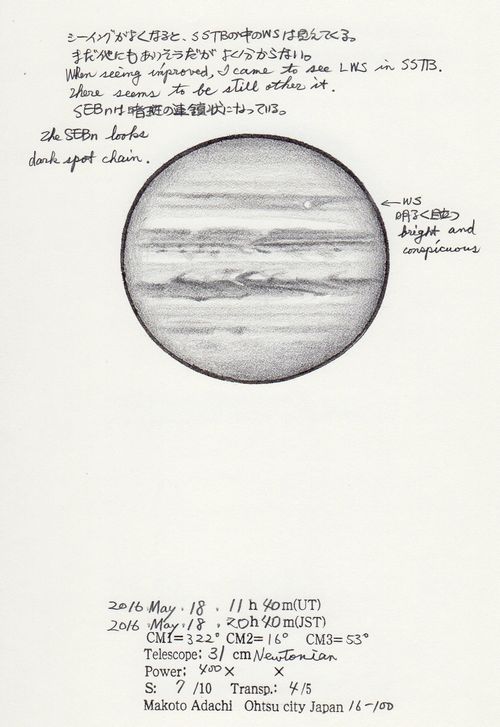 シーイングがよくなると、SSTBの中のWSは見えてくる。
まだ他にもありそうだがよく分からない。
When seeing improved, I came to see LWS in SSTB.
There seems to be still other it.
SEBnは暗斑の連鎖状になっている。
The SEBn looks
dark spot chain.
←WS
明るく目立つ
bright and
conspicuous
2016 May. 18. 11h 40m(UT)
2016 May. 18. 20h 40m(JST)
CM1=322° CM2=16° CM3=53°
Telescope: 31 cm Newtonian
Power: 400× ×
S: 7/10 Transp.: 4/5
Makoto Adachi Ohtsu city Japan 16-100